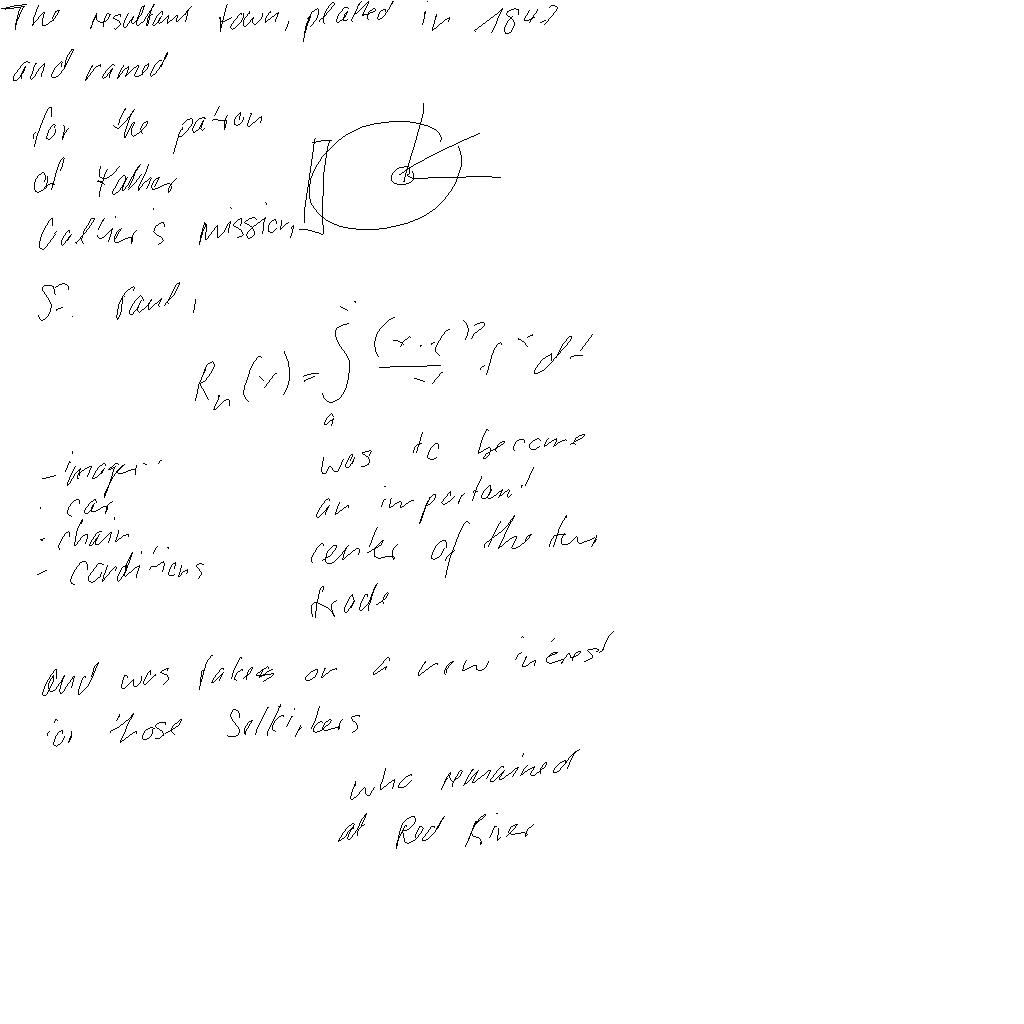 The resultant town, platted in 1843
and named
for the patron
of Father
Galtier's mission,
St. Paul,
R_n(x) = ∫ a
- imager
· car
- chain
- conditions
was to become
an important
center of the fur
trade
and was taken on a new interest
for those Selkirkers
who remained
at Red River